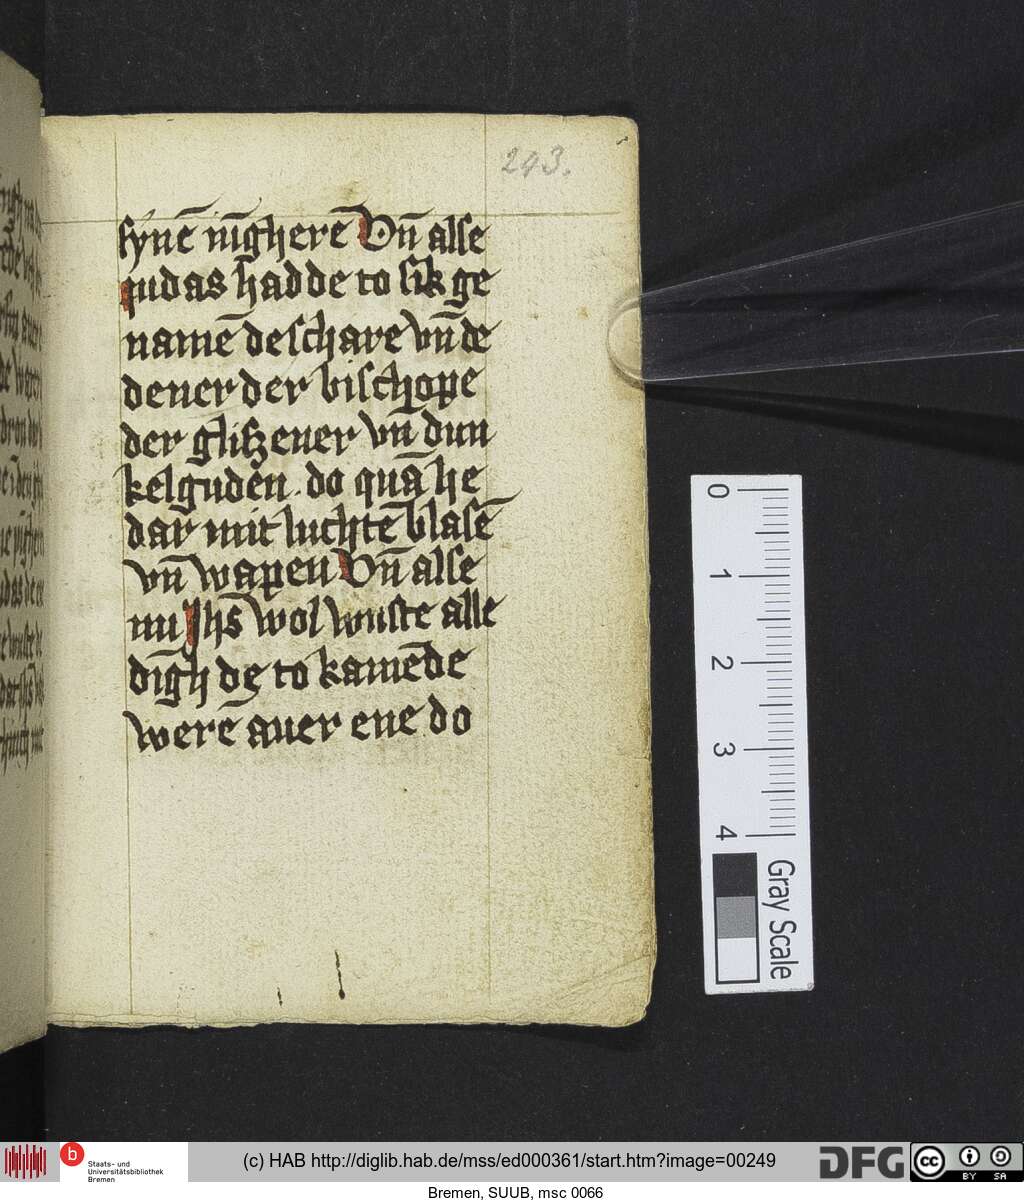 243.
synē nīgherē Vn̄ alse
iudas hadde to sik ge
namē de schare vn̄ de
dener der bischope
der glißener vn̄ dun
kelguden. do quā he
dar mit luchtē blasē
vn̄ wapen Vn̄ alse
nu Jhs̄ wol wuste alle
dīgh de to kamēde
werē auer ene do
0
1
2
3
4
Gray Scale
b Staats- und
Universitätsbibliothek
Bremen
(c) HAB http://diglib.hab.de/mss/ed000361/start.htm?image=00249
DFG
cc BY SA
Bremen, SUUB, msc 0066